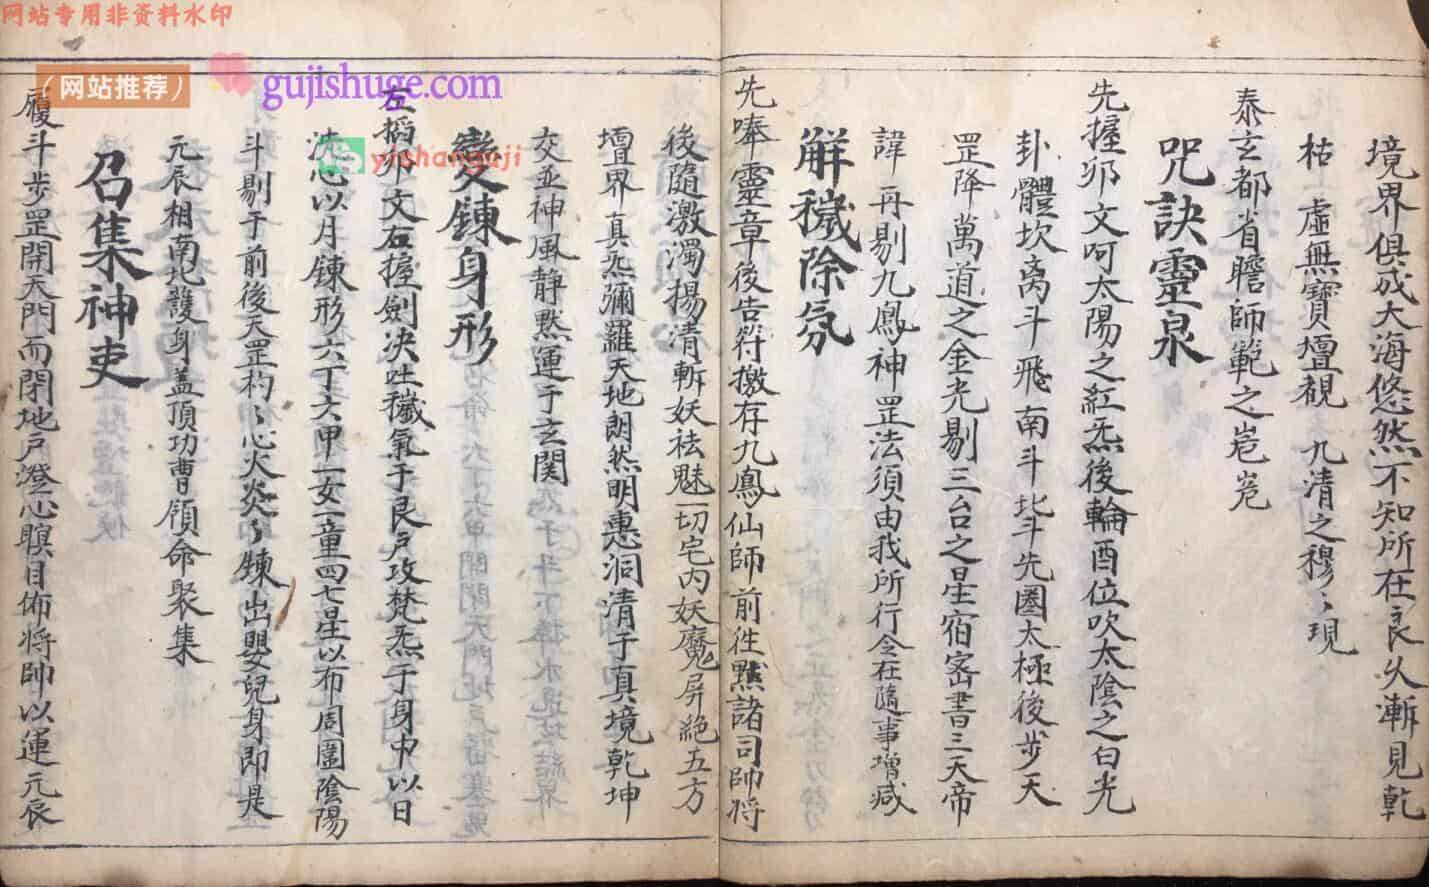 网站专用非资料水印
(网站推荐)
gujishuge.com
yishanguji
境界俱成大海悠然不知所在良久漸見乾
枯 虛無寶壇觀 九清之穆〻現
泰玄都省瞻師範之
咒訣靈泉
先握卯文呵太陽之紅炁後輪酉位吹太陰之白光
卦體坎离斗飛南斗北斗先圏太極後步天
罡降萬道之金光剔三台之星宿宻書三天帝
諱再剔九鳳神罡法須由我所行令在隨事增减
解穢除氛
先唪靈章後告符檄存九鳳仙師前徃黙諸司帥将
後隨激濁揚清斬妖祛魅一切宅内妖魔屏絶五方
壇界真炁彌羅天地朗然明惠洞清于真境乾坤
交並神風静黙運于玄関
變鍊身形
左搯卯文右握劍决吐穢氣于艮户攻梵炁于身中以日
洗心以月鍊形六丁六甲一女一童四七星以布周圍陰陽
斗剔于前後天罡杓〻心火炎〻鍊出嬰兒身即是
元辰相南地護身盖頂功曹領命聚集
召集神吏
履斗步罡開天門而閉地戸澄心瞑目佈将帥以運元辰